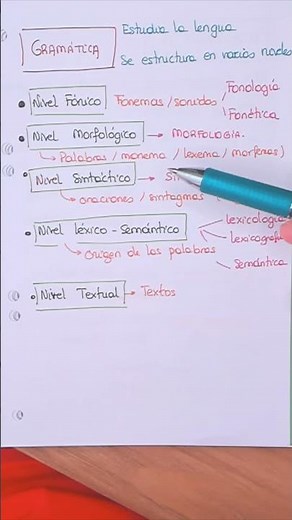 GRAMÁTICA
Estudia la lengua
Se estructura en varios niveles
Nivel Fónico Fonemas/sonidos
Fonología
Fonética
Nivel Morfológico → MORFOLOGÍA.
Palabras / monema / lexema / morfemas)
Nivel Sintáctico →
oraciones / sintagmas
Nivel léxico-semántico
lexicología
lexicografía
Semántica
origen de las palabras
Nivel Textual → Textos